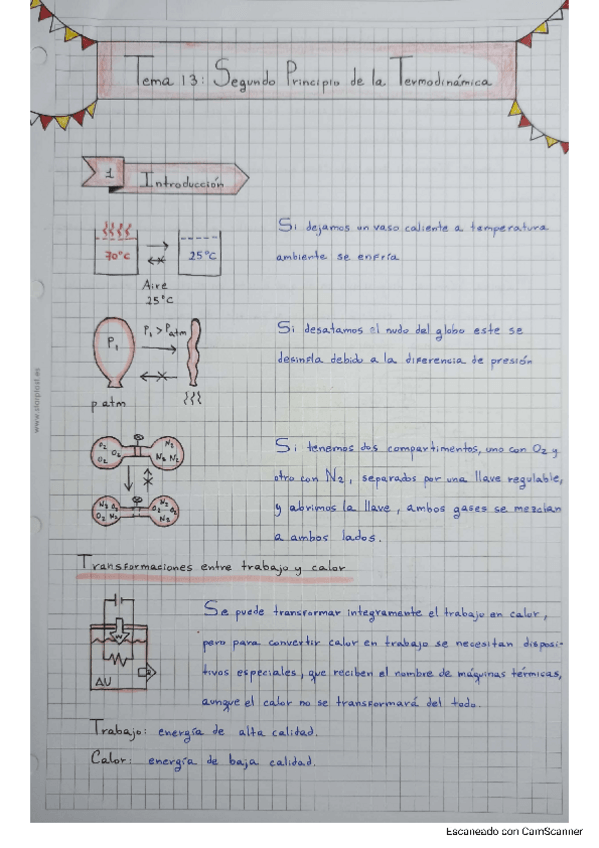 Tema 13: Segundo Principio de la Termodinámica
1 Introducción
70°C
25°C
Aire
25°C
Si dejamos un vaso caliente a temperatura
ambiente se enfría
P₁
P₁ > Patm
p atm
Si desatamos el nudo del globo este se
desinfla debido a la diferencia de presión
O₂ O₂ O₂
N₂ N₂ N₂
N₂ O₂ O₂ N₂
N₂ O₂ N₂
Si tenemos dos compartimentos, uno con O₂ y
otro con N₂, separados por una llave regulable,
y abrimos la llave, ambos gases se mezclan
a ambos lados.
Transformaciones entre trabajo y calor
W
ΔU
Se puede transformar íntegramente el trabajo en calor,
pero para convertir calor en trabajo se necesitan disposi-
tivos especiales, que reciben el nombre de máquinas térmicas,
aunque el calor no se transformará del todo.
Trabajo: energía de alta calidad.
Calor: energía de baja calidad.
Escaneado con CamScanner